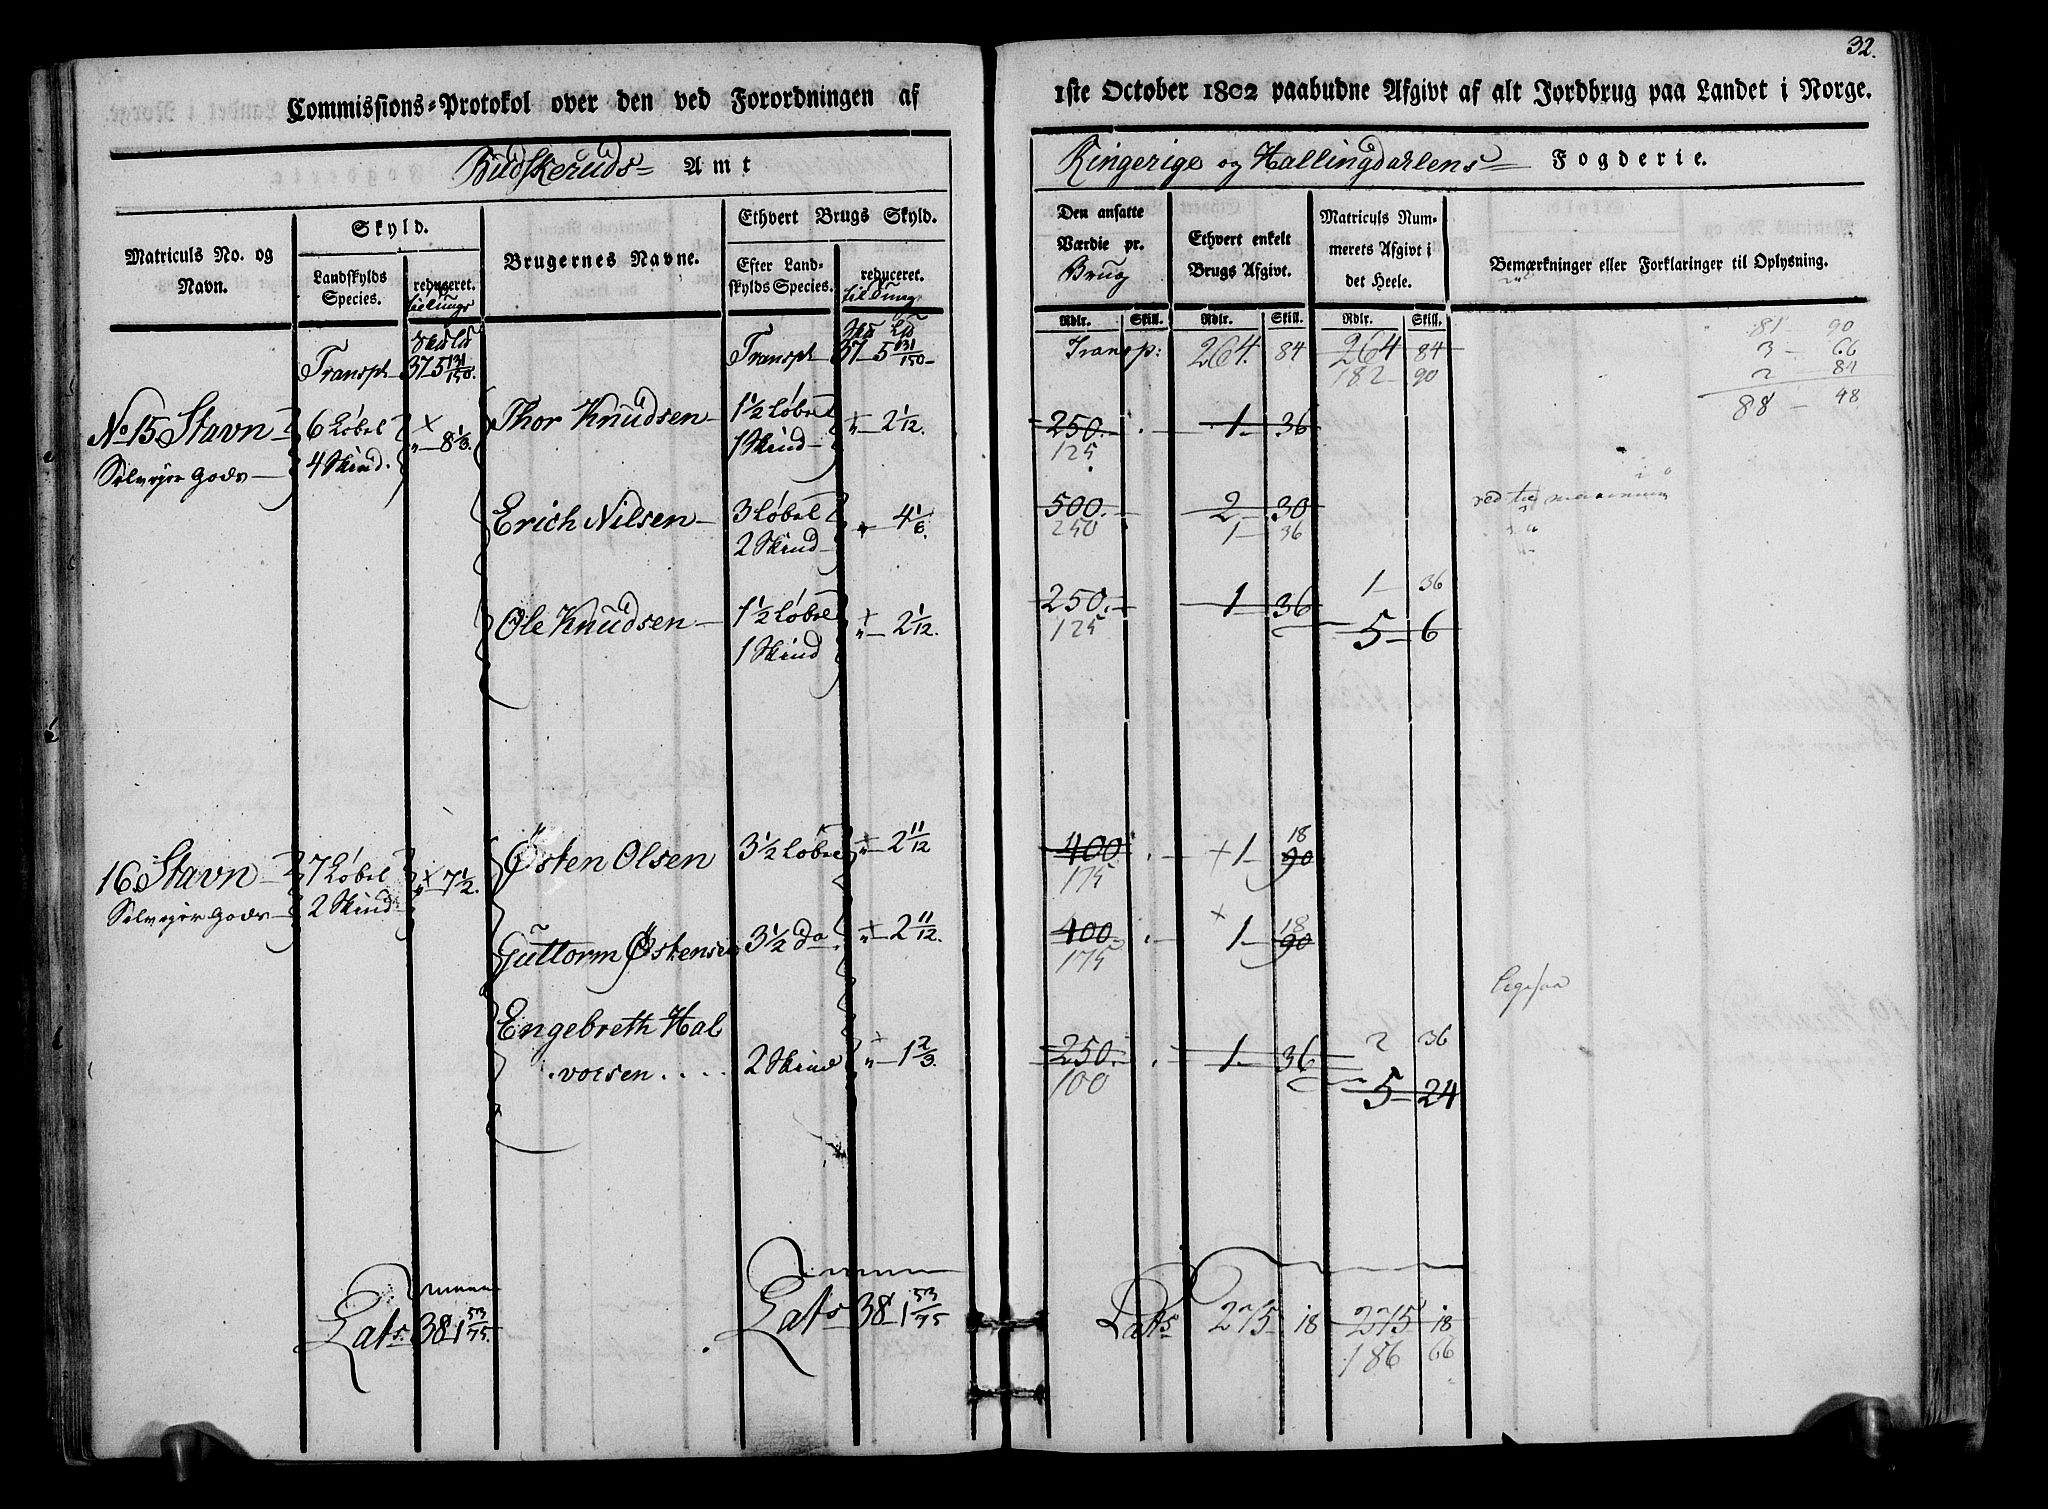 32.
Commissions=Protokol over den ved Forordningen af
1ste October 1802 paabudne Afgivt af alt Jordbrug paa Landet i Norge.
Budskeruds= Amt
Ringerige og Hallingdahlens= Fogderie.
Matriculs No. og Navn.
Skyld.
Landskylds Species.
reduceret.
Brugernes Navne.
Ethvert Brugs Skyld.
Efter Landskylds Species.
reduceret.
til Tunge
Den ansatte Værdie pr. Brug
Ethvert enkelt Brugs Afgivt.
Matriculs Nummerets Afgivt i det Heele.
Bemærkninger eller Forklaringer til Oplysning.
Rdlr. Skill. Rdlr. Skill. Rdlr. Skill.
Transpt 37 5 131/150. Transpt 37 5 131/150
Transp: 264. 84 264 84
182 - 90
81 - 90
3 - 66
2 - 84
88 - 48
No 15 Stavn 6 Løbel 4 Skind. " 8 1/3. Thor Knudsen 1 1/2 Løbel 1 Skind " 2 1/12. 250. 1 - 36
Selvejer Gods
125
Erich Nilsen 3 Løbel 2 Skind " 4 1/6. 500. 2 - 30
250 1 - 36
Ole Knudsen 1 1/2 Løbel 1 Skind " 2 1/12. 250. 1 - 36 1 36
125 5 - 6
16. Stavn 7 Løbel 2 Skind " 7 1/2. Østen Olsen 3 1/2 Løbel " 2 11/12 400 + 1 - 18 90
Selvejer Gods
175
Guttorm Østensen 3 1/2 Do " 2 11/12. 400. + 1 - 18 90
175
ligesaa
Engebreth Halvorsen 2 Skind " 1 2/3. 250. 1 - 36 2 36
100 5 - 24
Lats. 38 1 53/75. Lats 38 1 53/75
Lats 275 - 18 275 18
186 66